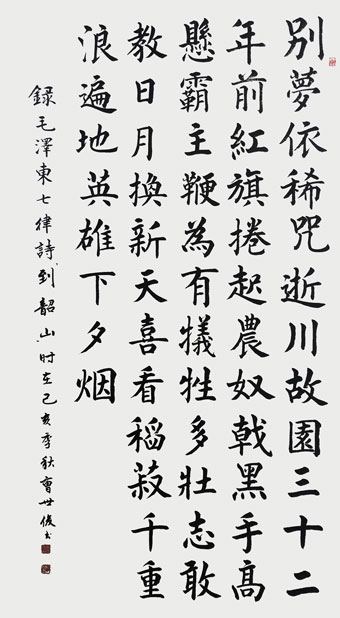 别夢依稀咒逝川故園三十二
年前紅旗捲起農奴戟黑手高
懸霸主鞭為有犧牲多壯志敢
教日月換新天喜看稻菽千重
浪遍地英雄下夕烟
錄毛澤東七律詩到韶山时在己亥季秋曹世俊书